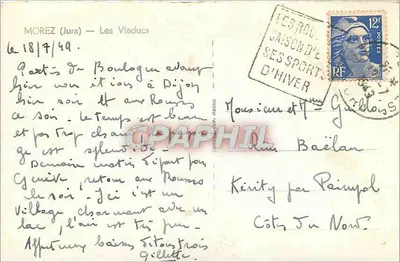 MOREZ (Jura) — Les Viaducs
le 18/7/49.
Partis de Boulogne avant
hier nous étions à Dijon
hier soir et aux Rousses
ce soir. Le temps est beau
et pas trop chaud
ge est splendide.
Demain matin départ pour
Genève, retour aux Rousses
le soir. Ici c'est un
village charmant avec un
lac, l'air est très pur.
Affectueux baisers de tous trois
Gillette.
LES ROUSSES
SAISON D'ÉTÉ
SES SPORTS
D'HIVER
12F
POSTES
RF
Monsieur et M
Rue Baëlan
Kérity par Paimpol
Côtes du Nord.
CPAPHIL